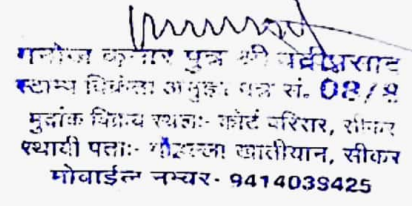 मनोज कुमार पुत्र श्री बद्रीप्रसाद
स्टाम्प विक्रेता अनुज्ञा पत्र सं. 08/8
मुद्रांक विक्रय स्थलः- कोर्ट परिसर, सीकर
स्थायी पताः- मौहल्ला खातीयान, सीकर
मोबाईल नम्बर- 9414039425